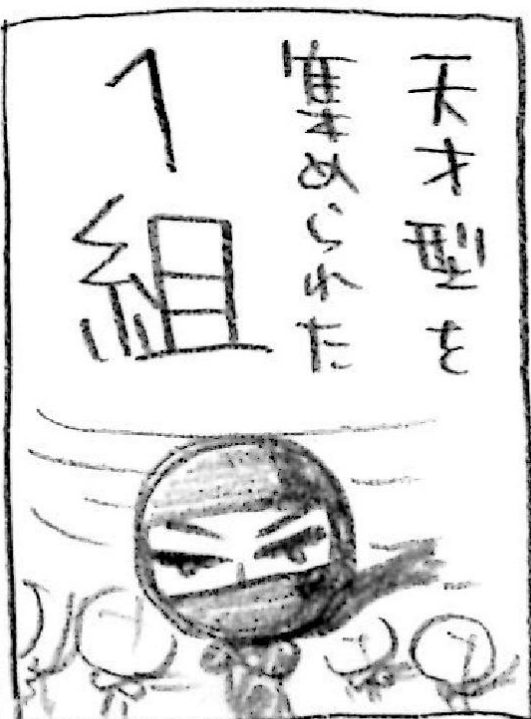 天才型を
集められた
1組